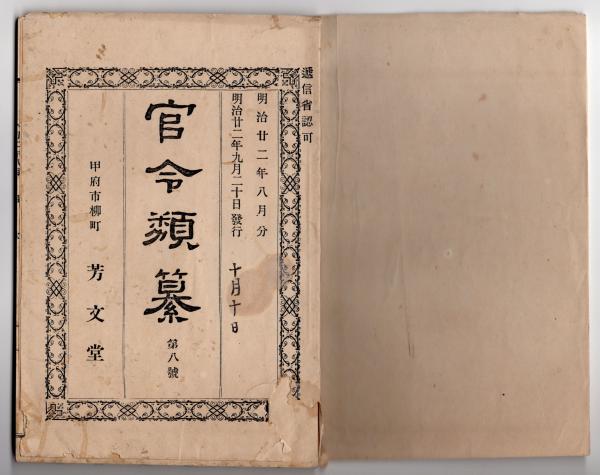 遞信省認可
明治廿二年八月分
明治廿二年九月二十日發行
十月十日
官令類纂
第八號
甲府市柳町
芳文堂